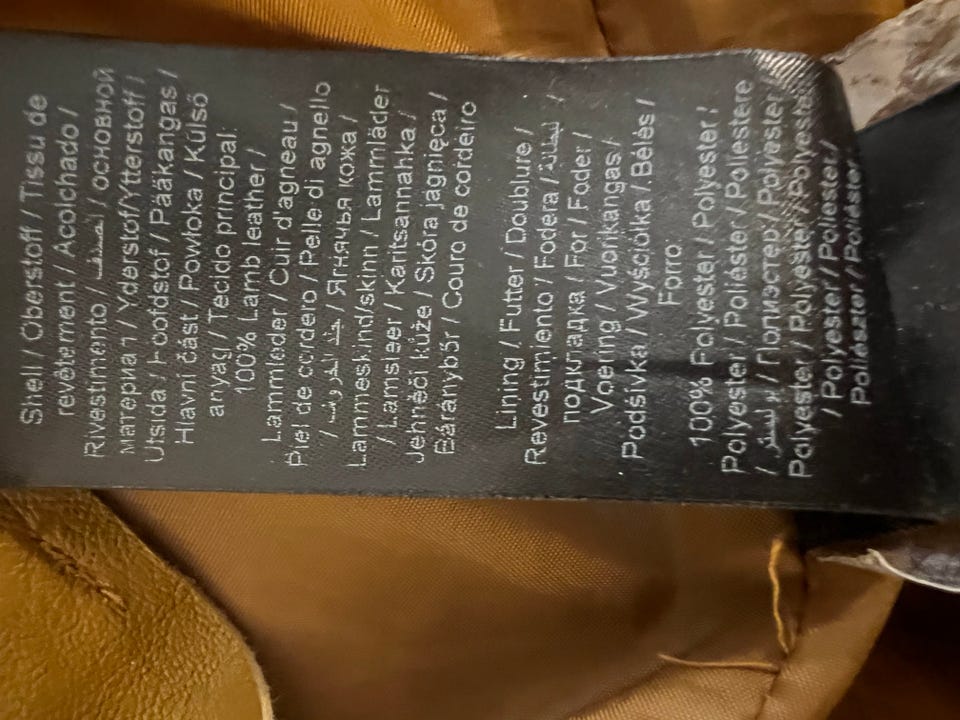 Shell / Oberstoff / Tissu de
revêtement / Acolchado /
Rivestimento / المصنف / основной
материал / Yderstof/Ytterstoff /
Utsida / Hoofdstof / Pääkangas /
Hlavní část / Powłoka / Külső
anyag / Tecido principal:
100% Lamb leather /
Lammleder / Cuir d'agneau /
Piel de cordero / Pelle di agnello
/ جلد الخروف / Ягнячья кожа /
Lammeskind/skinn / Lammläder
/ Lamsleer / Karitsannahka /
Jehněčí kůže / Skóra jagnięca /
Báránybőr / Couro de cordeiro
Lining / Futter / Doublure /
Revestimiento / Fodera / بطانة /
подкладка / For / Foder /
Voering / Vuorikangas /
Podšívka / Wyściółka / Bélés /
Forro:
100% Polyester / Polyester /
Polyester / Poliéster / Poliestere
/ بوليستر / Полиэстер / Polyester
Polyester / Polyester / Polyester
/ Polyester / Poliester /
Poliészter / Poliéster